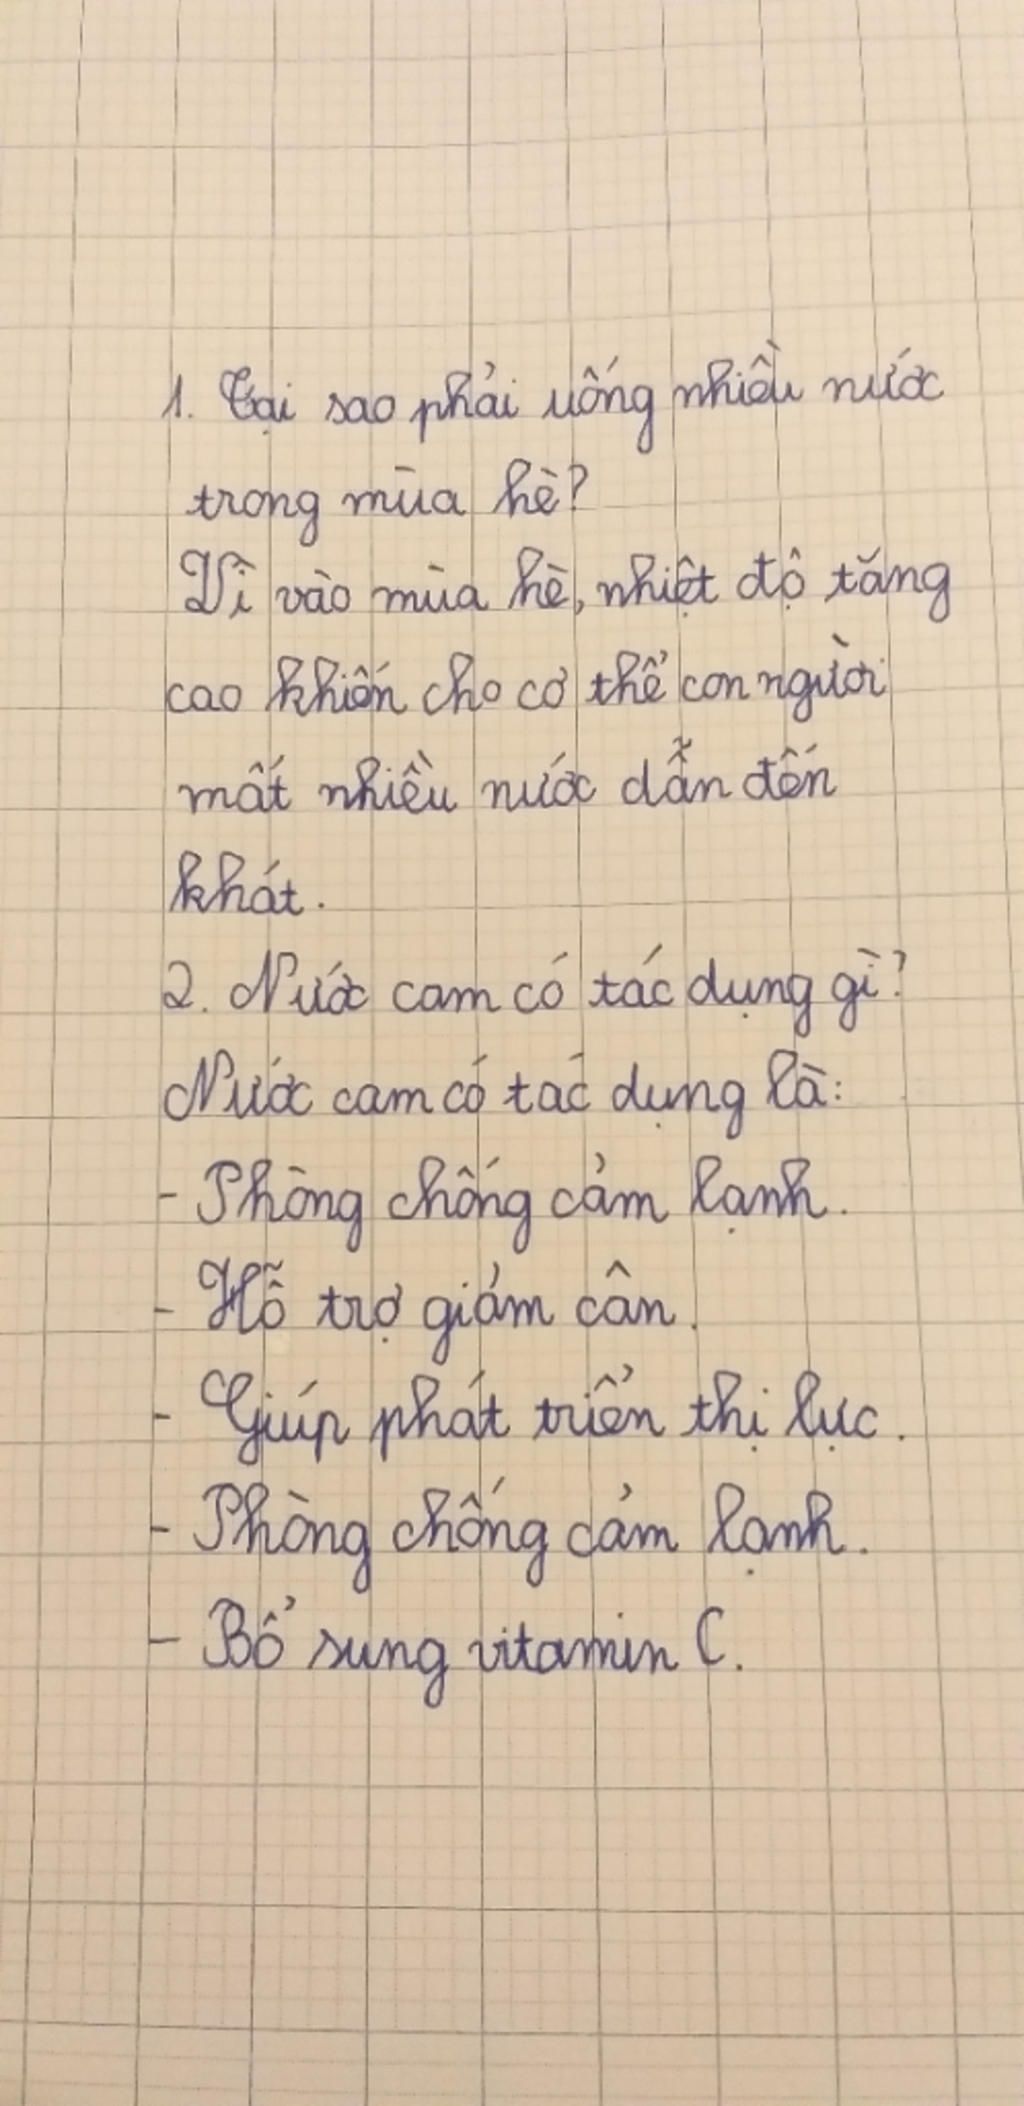 1. Tại sao phải uống nhiều nước
trong mùa hè?
Vì vào mùa hè, nhiệt độ tăng
cao khiến cho cơ thể con người
mất nhiều nước dẫn đến
khát.
2. Nước cam có tác dụng gì?
Nước cam có tác dụng là:
- Phòng chống cảm lạnh.
- Hỗ trợ giảm cân.
- Giúp phát triển thị lực.
- Phòng chống cảm lạnh.
- Bổ sung vitamin C.